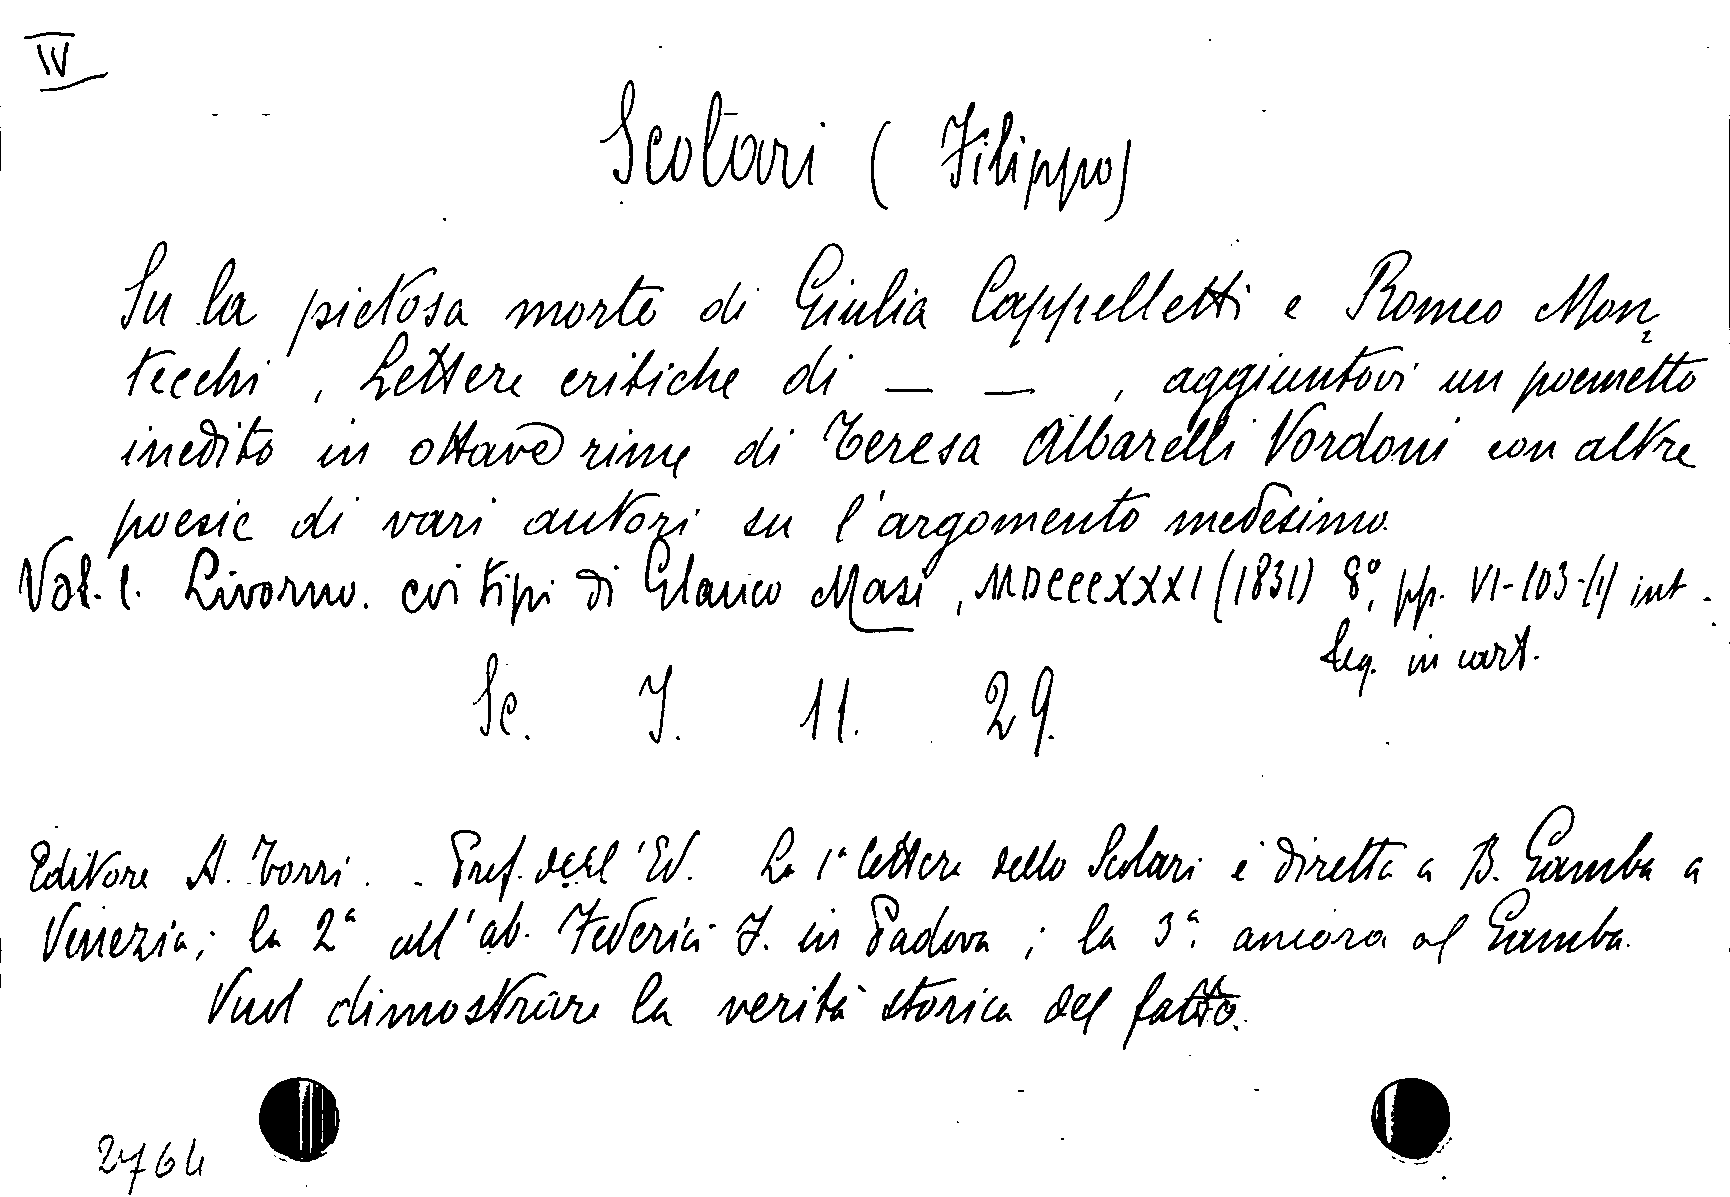 IV
Scolari ( Filippo)
Su la pietosa morte di Giulia Cappelletti e Romeo Mon=
tecchi , Lettere critiche di — — , aggiuntovi un poemetto
inedito in ottave rime di Teresa Albarelli Vordoni con altre
poesie di vari autori su l'argomento medesimo.
Vol. 1. Livorno. coi tipi di Glauco Masi, MDCCCXXXI (1831) 8°, pp. VI-103-(1) int.
Leg. in cart.
Sc. I. 11. 29.
Editore A. Torri. - Pref. dell'Ed. La 1ª lettera dello Scolari è diretta a B. Gamba a
Venezia; la 2ª all'ab. Federici F. in Padova ; la 3ª. ancora al Gamba.
Vuol dimostrare la verità storica del fatto.
2764